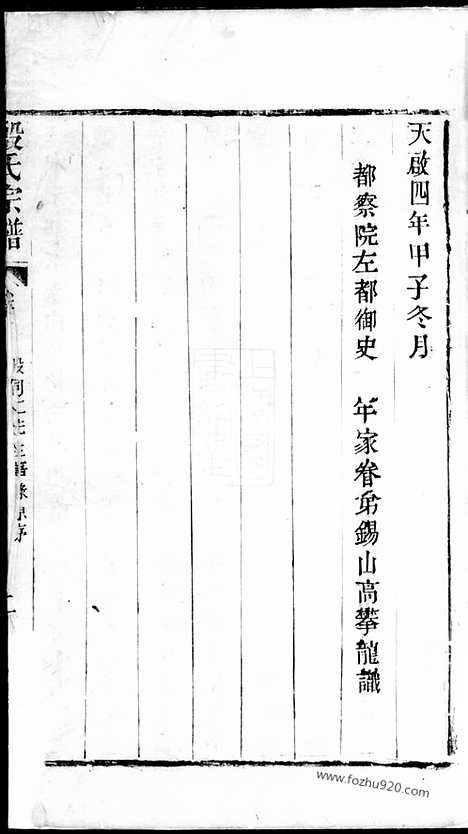 天啟四年甲子冬月
都察院左都御史　年家眷弟錫山高攀龍識
殷氏宗譜
www.fozhu920.com